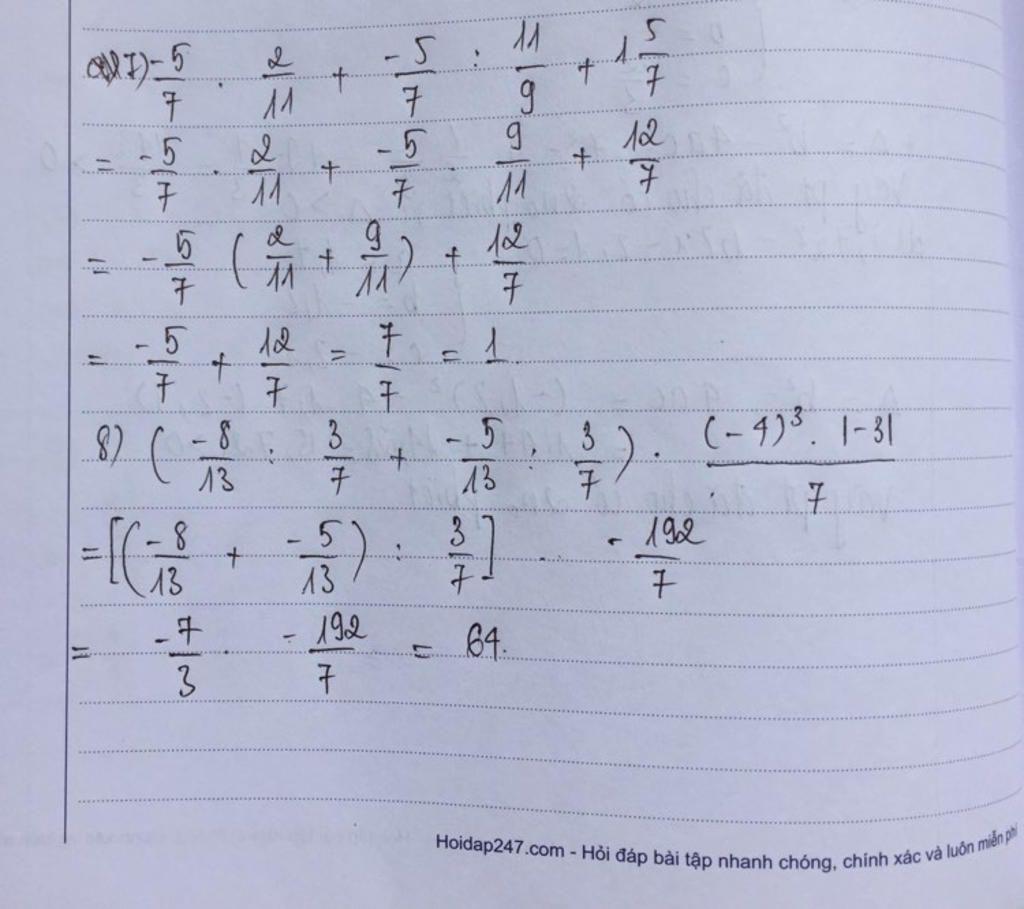 7) -5/7 . 2/11 + -5/7 : 11/9 + 1 5/7
= -5/7 . 2/11 + -5/7 . 9/11 + 12/7
= -5/7 (2/11 + 9/11) + 12/7
= -5/7 + 12/7 = 7/7 = 1
8) (-8/13 : 3/7 + -5/13 : 3/7) . (-4)³ . |-3| / 7
= [(-8/13 + -5/13) : 3/7] . -192/7
= -7/3 . -192/7 = 64.
Hoidap247.com - Hỏi đáp bài tập nhanh chóng, chính xác và luôn miễn phí